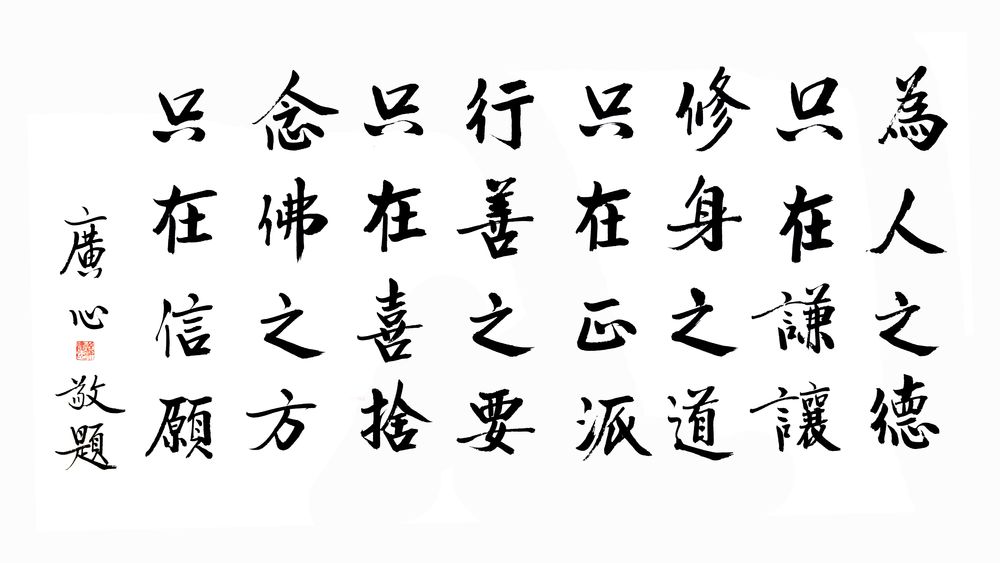 為人之德
只在謙讓
修身之道
只在正派
行善之要
只在喜捨
念佛之方
只在信願
廣心敬題